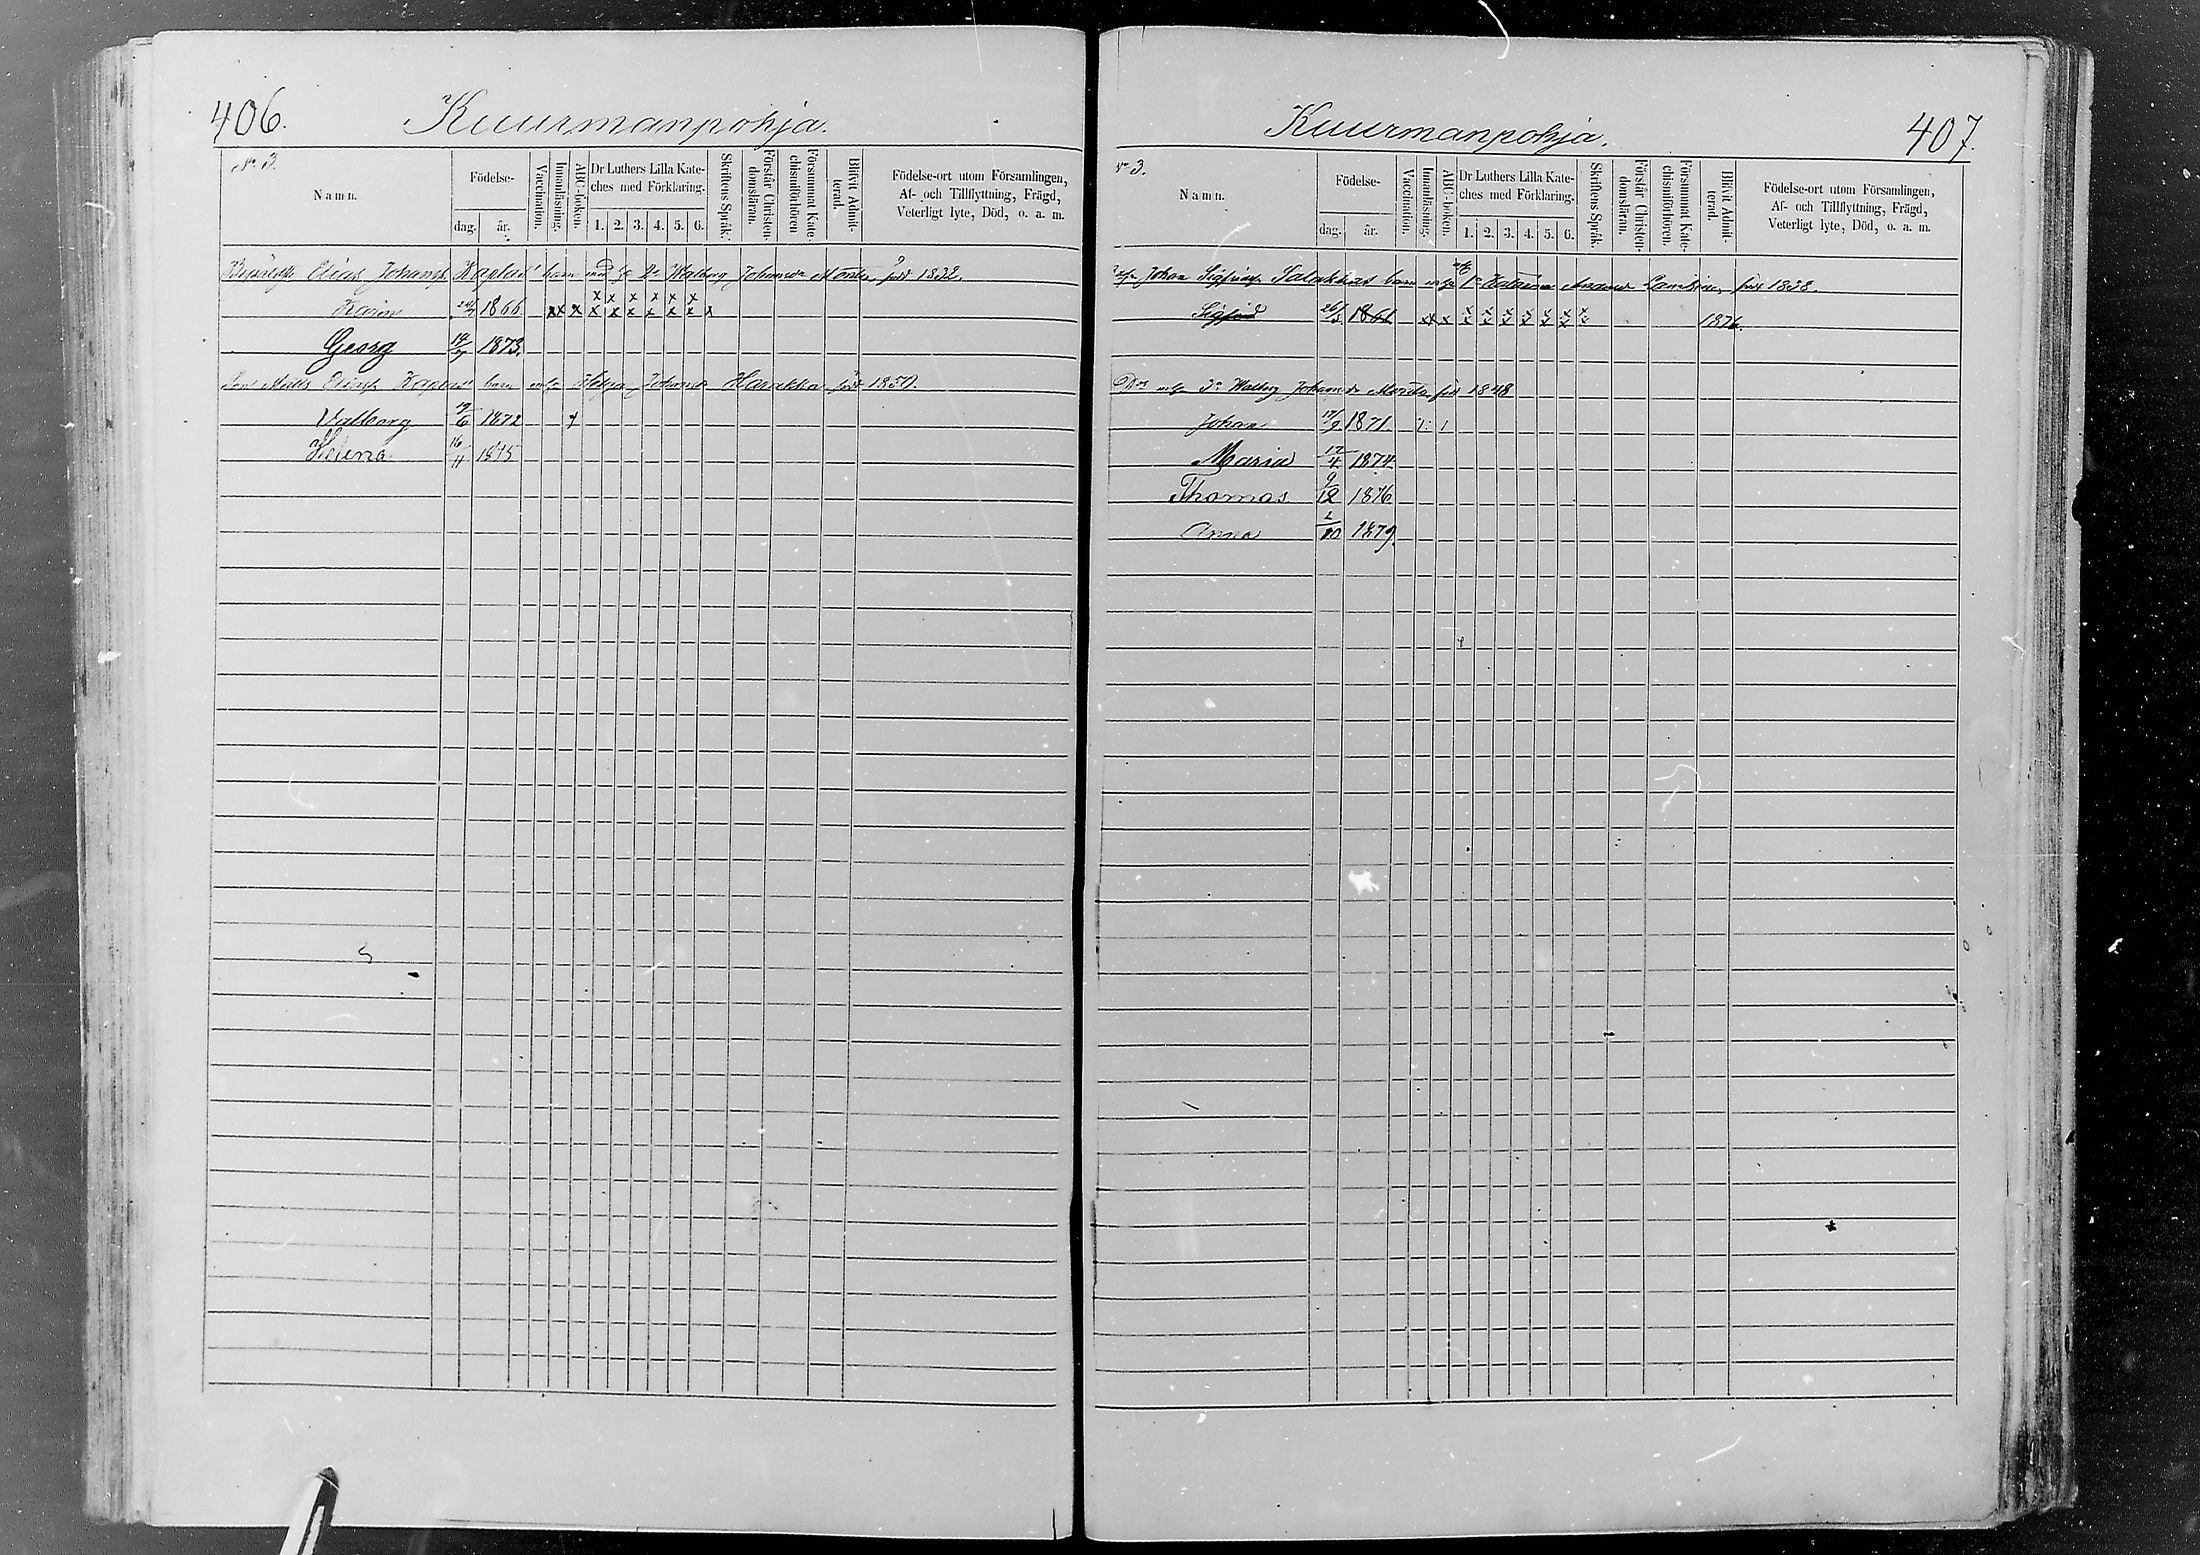 406.
Kuurmanpohja.
No 3.
Namn.
Födelse-
dag. år.
Vaccination.
Innanläsning.
ABC-boken.
Dr Luthers Lilla Kate-
ches med Förklaring.
1. 2. 3. 4. 5. 6.
Skriftens Språk.
Förstår Christen-
domsläran.
Försummat Kate-
chismiförhören
Blifvit Admit-
terad.
Födelse-ort utom Församlingen,
Af- och Tillflyttning, Frägd,
Veterligt lyte, Död, o. a. m.
Elias Johansf. barn Walborg Johansdr född 1832.
Karin 1866. x x x x x x
x x x x x x x x x
Georg 1873.
Matts barn Helga Johansdr Harakka född 1850.
Valborg 19/6 1872
Helena 16/11 1875
407.
Kuurmanpohja.
No 3.
Namn.
Födelse-
dag. år.
Vaccination.
Innanläsning.
ABC-boken.
Dr Luthers Lilla Kate-
ches med Förklaring.
1. 2. 3. 4. 5. 6.
Skriftens Språk.
Förstår Christen-
domsläran.
Försummat Kate-
chismiförhören.
Blifvit Admit-
terad.
Födelse-ort utom Församlingen,
Af- och Tillflyttning, Frägd,
Veterligt lyte, Död, o. a. m.
Johan Sigfridsf. barn Katarina Andersdr född 1838.
Sigfrid 1861 1876.
Walborg Johansdr född 1848
Johan 1871.
Maria 1874
Thomas 9/12 1876
Anna 1879.